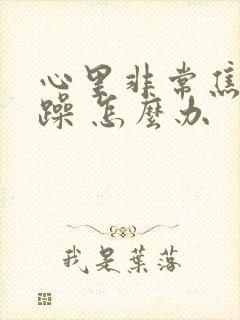 心里非常焦
躁 怎麼办
我是葉落